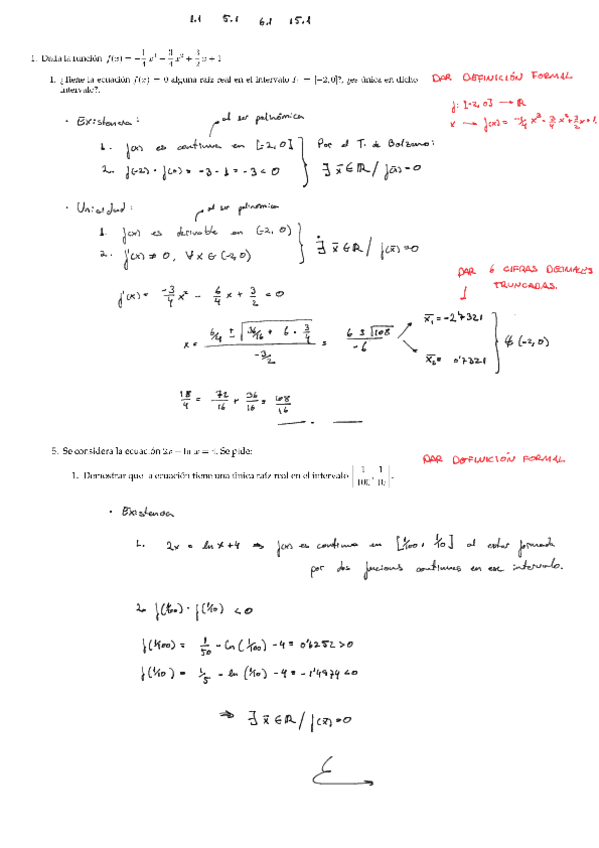 1.1 5.1 6.1 15.1
1. Dada la función f(x) = −1/4 x³ − 3/4 x² + 3/2 x + 1
1. ¿Tiene la ecuación f(x) = 0 alguna raíz real en el intervalo I = [−2,0]?, ¿es única en dicho intervalo?.
DAR DEFINICIÓN FORMAL
f: [-2,0] → ℝ
x → f(x) = -1/4 x³ - 3/4 x² + 3/2 x + 1
• Existencia:
al ser polinómica
1. f(x) es continua en [-2,0]
2. f(-2) · f(0) = -3 · 1 = -3 < 0
Por el T. de Bolzano:
∃ x̄ ∈ ℝ / f(x̄) = 0
• Unicidad:
al ser polinómica
1. f(x) es derivable en (-2,0)
2. f'(x) ≠ 0, ∀ x ∈ (-2,0)
∃̇ x̄ ∈ ℝ / f(x̄) = 0
DAR 6 CIFRAS DECIMALES TRUNCADAS.
f'(x) = -3/4 x² - 6/4 x + 3/2 = 0
x = (6/4 ± √(36/16 + 6 · 3/4)) / (-3/2) = (6 ± √108) / -6
x̄₁ = -2'7321
x̄₂ = 0'7321
∉ (-2,0)
18/4 = 72/16 + 36/16 = 108/16
5. Se considera la ecuación 2x − ln x = 4. Se pide:
DAR DEFINICIÓN FORMAL
1. Demostrar que la ecuación tiene una única raíz real en el intervalo [1/100, 1/10].
• Existencia
1. 2x = ln x + 4 ⇒ f(x) es continua en [1/100, 1/10] al estar formada
por dos funciones continuas en ese intervalo.
2. f(1/100) · f(1/10) < 0
f(1/100) = 1/50 - ln(1/100) - 4 = 0'6252 > 0
f(1/10) = 1/5 - ln(1/10) - 4 = -1'4974 < 0
⇒ ∃ x̄ ∈ ℝ / f(x̄) = 0